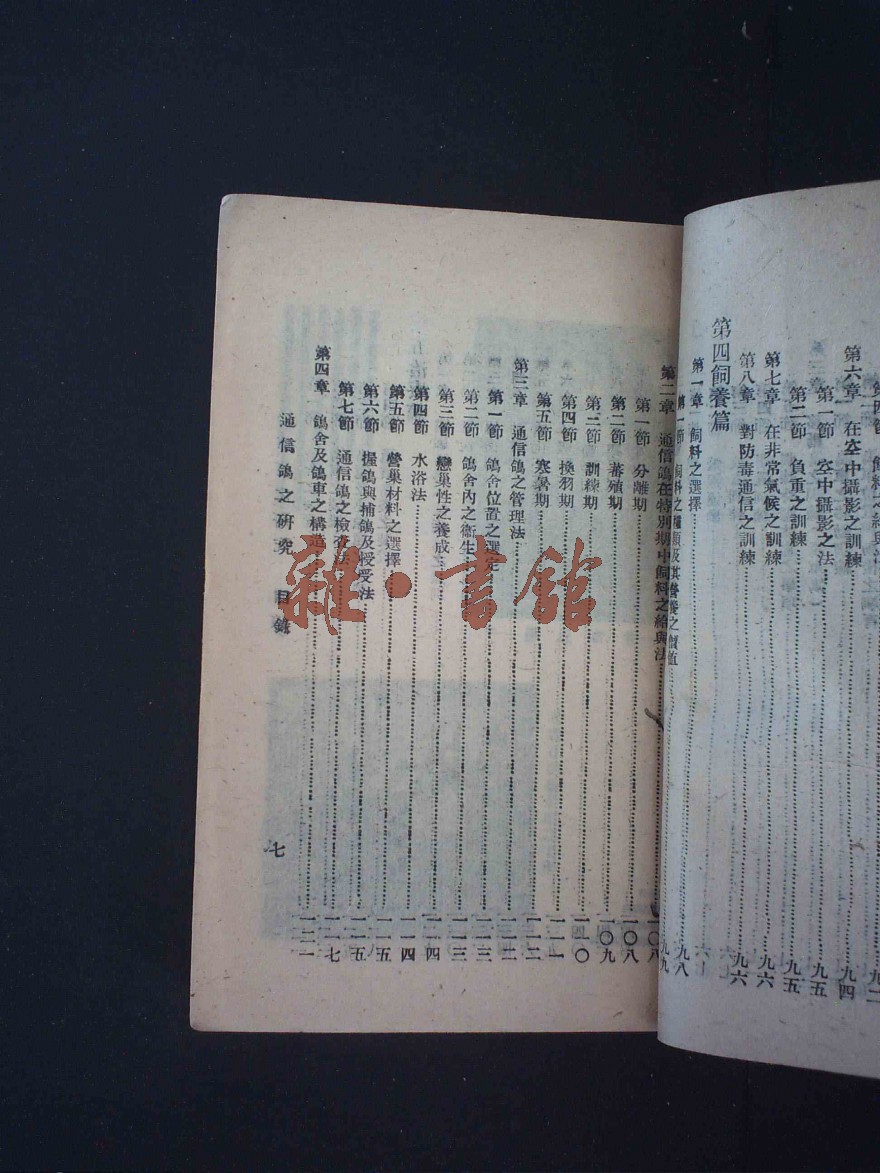 第六章　在空中攝影之訓練……九四
第一節　空中攝影之法……九五
第二節　負重之訓練……九五
第七章　在非常氣候之訓練……九六
第八章　對防毒通信之訓練……九六
第四飼養篇
第一章　飼料之選擇……九八
第一節　飼料之種類及其營養之價值……九九
第二章　通信鴿在特別期中飼料之給與法……一〇八
第一節　分離期……一〇八
第二節　蕃殖期……一〇九
第三節　訓練期……一一〇
第四節　換羽期……一一一
第五節　寒暑期……一一二
第三章　通信鴿之管理法……一一二
第一節　鴿舍位置之選定……一一三
第二節　鴿舍內之衞生……一一三
第三節　戀巢性之養成……一一四
第四節　水浴法……一一四
第五節　營巢材料之選擇……一一五
第六節　握鴿與捕鴿及授受法……一一五
第七節　通信鴿之檢查法……一一七
第四章　鴿舍及鴿車之構造……一二一
通信鴿之研究　目錄
七
雜·書館